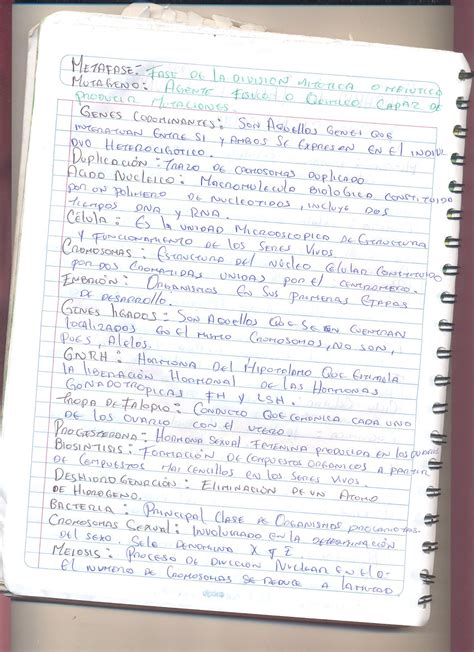 METAFASE:- FASE DE LA DIVISION MITOTICA O MEIOTICA
MUTAGENO:- AGENTE FISICO O QUIMICO CAPAZ DE
PRODUCIR MUTACIONES.
GENES CODOMINANTES: SON AQUELLOS GENES QUE
INTERACTUAN ENTRE SI Y AMBOS SE EXPRESEN EN EL INDIVI
DUO HETEROCIGOTICO.
DUPLICACIÓN: TRAZO DE CROMOSOMAS DUPLICADO
ACIDO NUCLEICO: MACROMOLECULA BIOLOGICA CONSTITUIDO
POR UN POLIMERO DE NUCLEOTIDOS, INCLUYE DOS
TIEMPOS DNA Y RNA.
CÉLULA: ES LA UNIDAD MICROSCOPICA DE ESTRUCTURA
Y FUNCIONAMIENTO DE LOS SERES VIVOS.
CROMOSOMAS: ESTRUCTURA DEL NÚCLEO CELULAR CONSTITUIDO
POR DOS CROMATIDAS UNIDAS POR EL CENTROMERO.
EMBRIÓN: ORGANISMOS EN SUS PRIMERAS ETAPAS
DE DESARROLLO.
GENES LIGADOS: SON AQUELLOS QUE SE EN CUENTRAN
LOCALIZADOS EN EL MISMO CROMOSOMAS, NO SON,
PUES, ALELOS.
GNRH: HORMONA DEL HIPOTALAMO QUE ESTIMULA
LA LIBERACIÓN HORMONAL DE LAS HORMONAS
GONADOTROPICAS FH Y LSH.
TROPA DE FALOPIO: CONDUCTO QUE COMUNICA CADA UNO
DE LOS OVARIO CON EL UTERO.
PROGESTERONA: HORMONA SEXUAL FEMENINA PRODUCIDA EN LOS OVARIOS
BIOSINTISIS: FORMACIÓN DE COMPUESTOS ORGANICOS A PARTIR
DE COMPUESTOS MAS CENCILLOS EN LOS SERES VIVOS.
DESHIDROGENACIÓN: ELIMINACIÓN DE UN ATOMO
DE HIDROGENO.
BACTERIA: PRINCIPAL CLASE DE ORGANISMOS
CROMOSOMAS SEXUAL: INVOLUCRADO EN LA DETERMINACIÓN
DEL SEXO. SELE DENOMINA X Y
MEIOSIS: PROCESO DE DIVICION NUCLEAR EN
EL NUMERO DE CROMOSOMAS SE REDUCE A LA MITAD